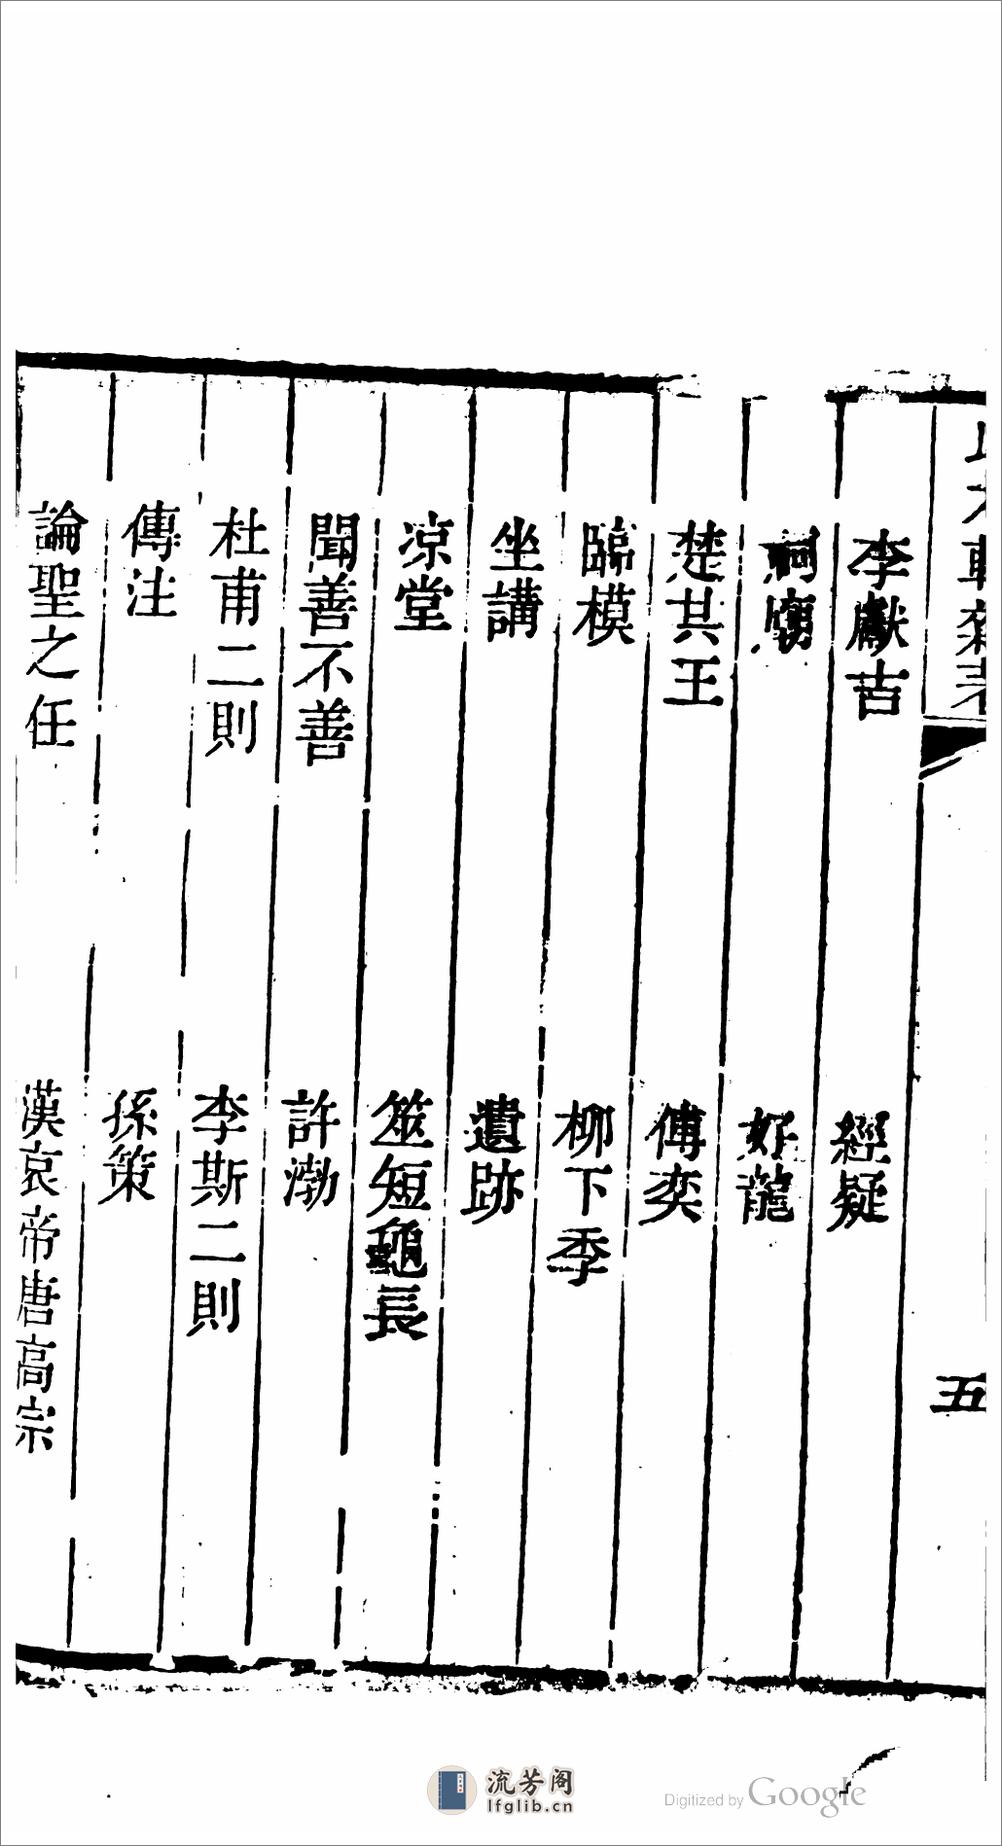 李獻吉
經疑
祠廟
好龍
楚共王
傅奕
臨模
柳下季
坐講
遺跡
凉堂
筮短龜長
聞善不善
許渤
杜甫二則
李斯二則
傳注
孫策
論聖之任
漢哀帝唐高宗
五
流芳阁
lfglib.cn
Digitized by Google